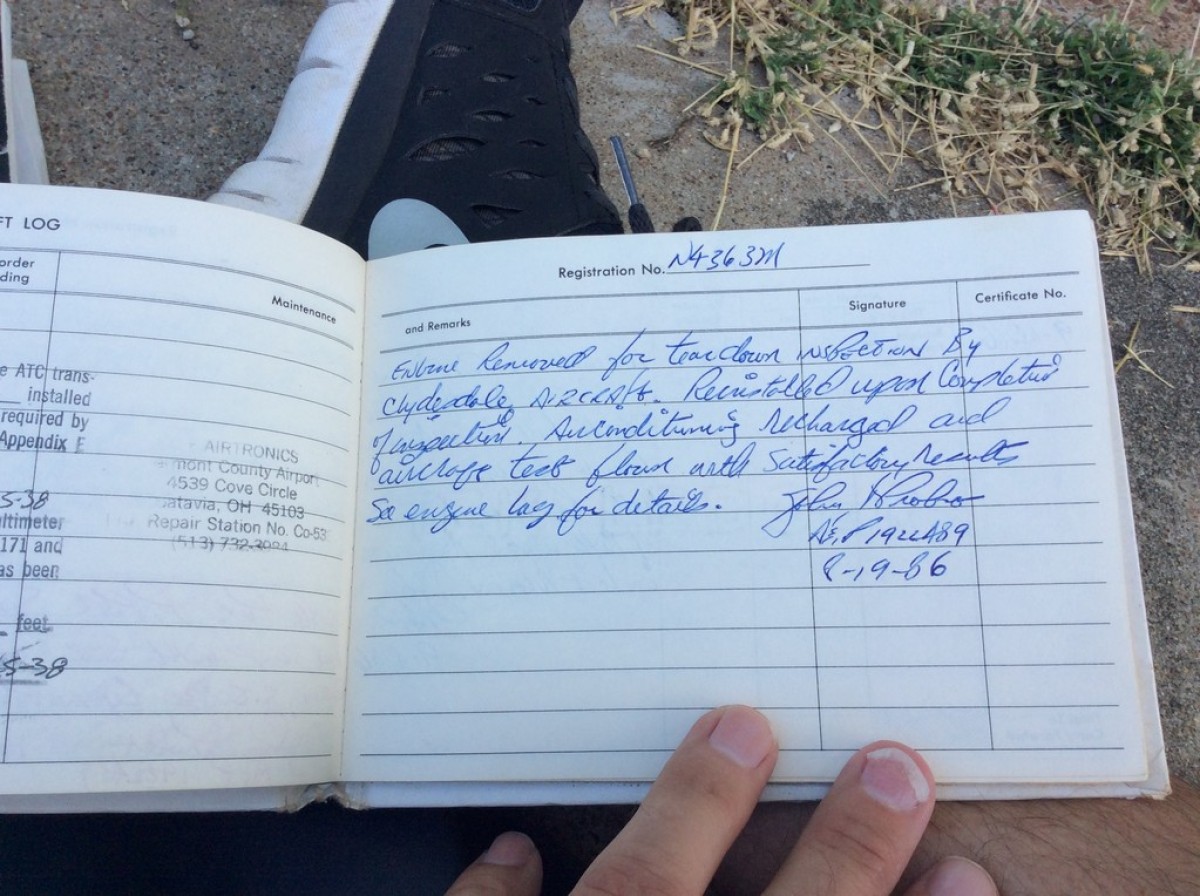 FT LOG
order
ding
Maintenance
e ATC trans-
installed
required by
Appendix E
AIRTRONICS
mont County Airport
4539 Cove Circle
atavia, OH 45103
Repair Station No. Co-53
(513) 732-3984
5-38
ltimeter
171 and
as been
feet
5-38
Registration No. N4363M
and Remarks
Signature
Certificate No.
Engine Removed for teardown inspection By
Clydesdale Aircraft. Reinstalled upon Completion
of inspection. Airconditioning recharged and
test flown with Satisfactory Results
See engine log for details. John
A&P 1922489
8-19-86